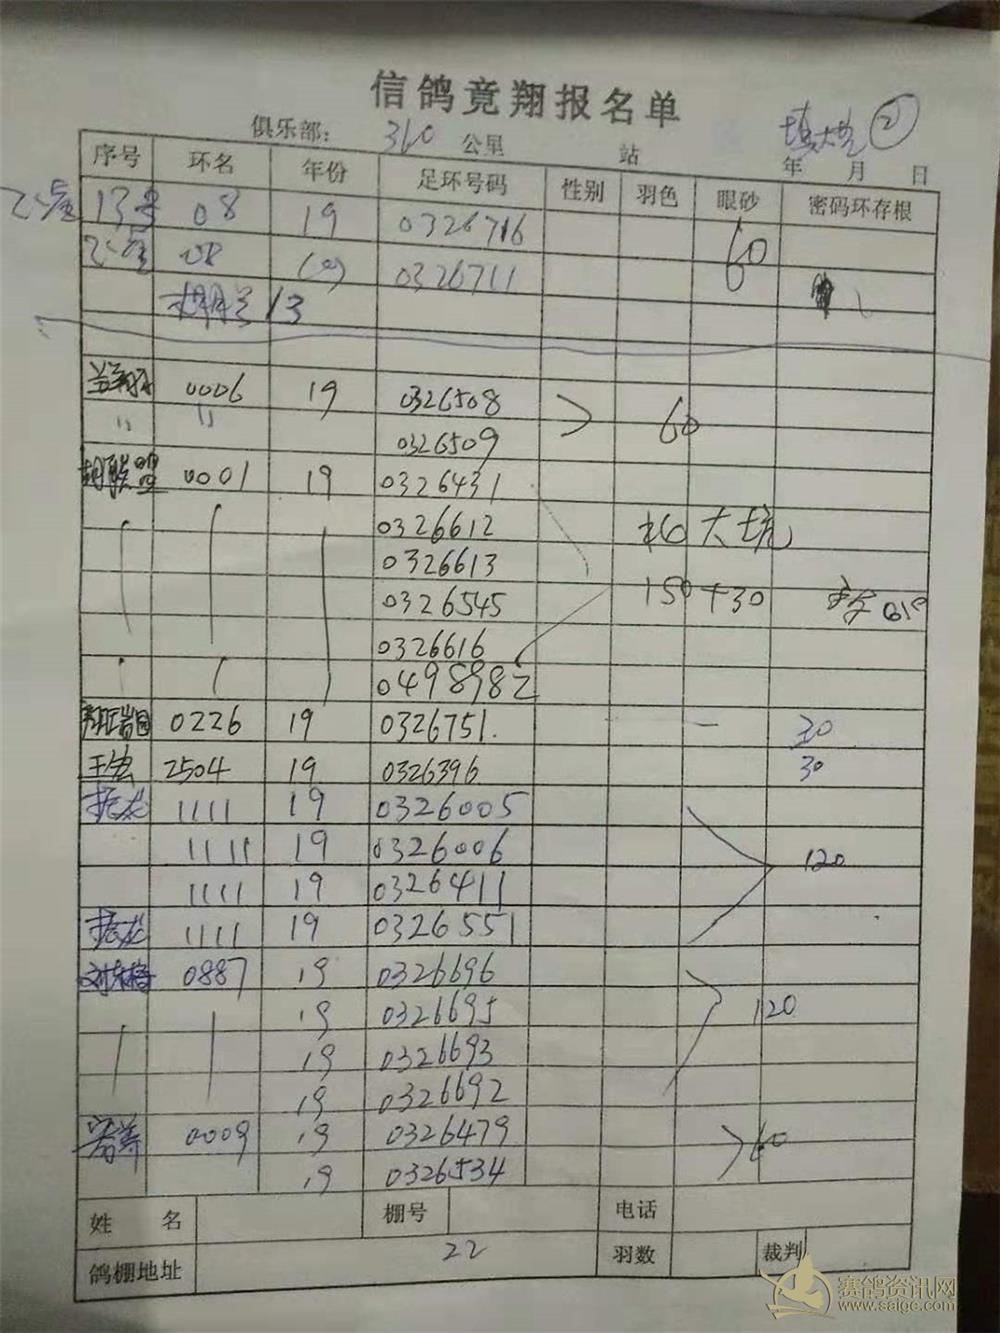 信鸽竟翔报名单
俱乐部： 360 公里 站 年 月 日 ②
序号 环名 年份 足环号码 性别 羽色 眼砂 密码环存根
13 08 19 0326716
08 0326711 60
13
0006 19 0326508
〃 〃 0326509 60
胡联盟 0001 19 0326431
0326612 大坑
0326613
0326545 150+30
0326616
0498982
0226 19 0326751 30
王宏 2504 19 0326396 30
1111 19 0326005
1111 19 0326006 120
1111 19 0326411
1111 19 0326551
0887 19 0326696
19 0326695 120
19 0326693
19 0326692
0009 19 0326479 60
19 0326534
姓名 棚号 电话
鸽棚地址 22 羽数 裁判
赛鸽资讯网
www.saige.com